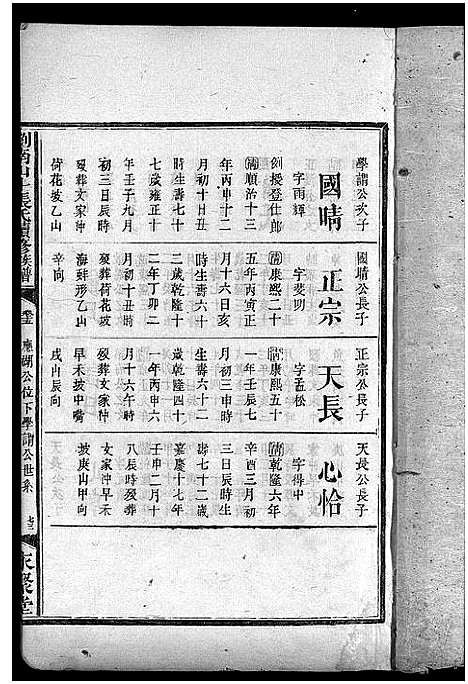 學謂公次子
國晴
字雨輝
例授登仕郎
清順治十三
年丙申十二
月初十日丑
時生壽七十
七歲雍正十
年壬子九月
初三日辰時
歿葬文家沖
荷花坡乙山
辛向
國晴公長子
正宗
字斐明
清康熙二十
五年丙寅正
月十六日亥
時生壽六十
二歲乾隆十
二年丁卯二
月初十丑時
歿葬荷花坡
海蚌形乙山
正宗公長子
天長
字孟松
清康熙五十
一年壬辰七
月初三申時
生壽六十二
歲乾隆四十
一年丙申六
月十六午時
歿葬文家沖
早禾坡中嘴
戌山辰向
天長公長子
心恰
字得中
清乾隆六年
辛酉三月初
三日辰時生
壽七十二歲
嘉慶十七年
壬申二月十
八辰時歿葬
文家沖早禾
坡庚山甲向
應湖公位下學謂公世系
永聚堂